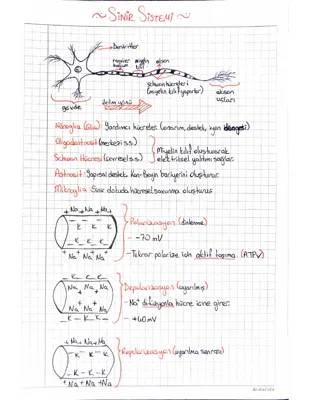 ~ Sinir Sistemi ~
Dendritler
ranvier boğum
miyelin kılıf
akson
schwann hücreleri
(miyelin kılıf yaparlar)
akson uçları
gövde
iletim yönü
Nöroglia (Glia): Yardımcı hücreler (onarım, destek, iyon dengesi)
Oligodendrosit (merkezi s.s.)
Schwann Hücresi (çevresel s.s.)
Miyelin kılıf oluşturarak
elektriksel yalıtım sağlar.
Astrosit: Yapısal destek. Kan-Beyin bariyerini oluşturur.
Mikroglia: Sinir dokuda hücresel savunma oluşturur.
+ Na + Na + Na +
K K K
+ Na + Na + Na
Polarizasyon (dinlenme)
- -70 mV
- Tekrar polarize için aktif taşıma. (ATP ↓)
K K K
Na Na Na
+ Na + Na
K K K
Depolarizasyon (uyarılmış)
- Na+ difüzyonla hücre içine girer.
- +40 mV
+ Na + Na + Na +
K K K
K K K
+ Na + Na + Na
Repolarizasyon (uyarılma sonrası)